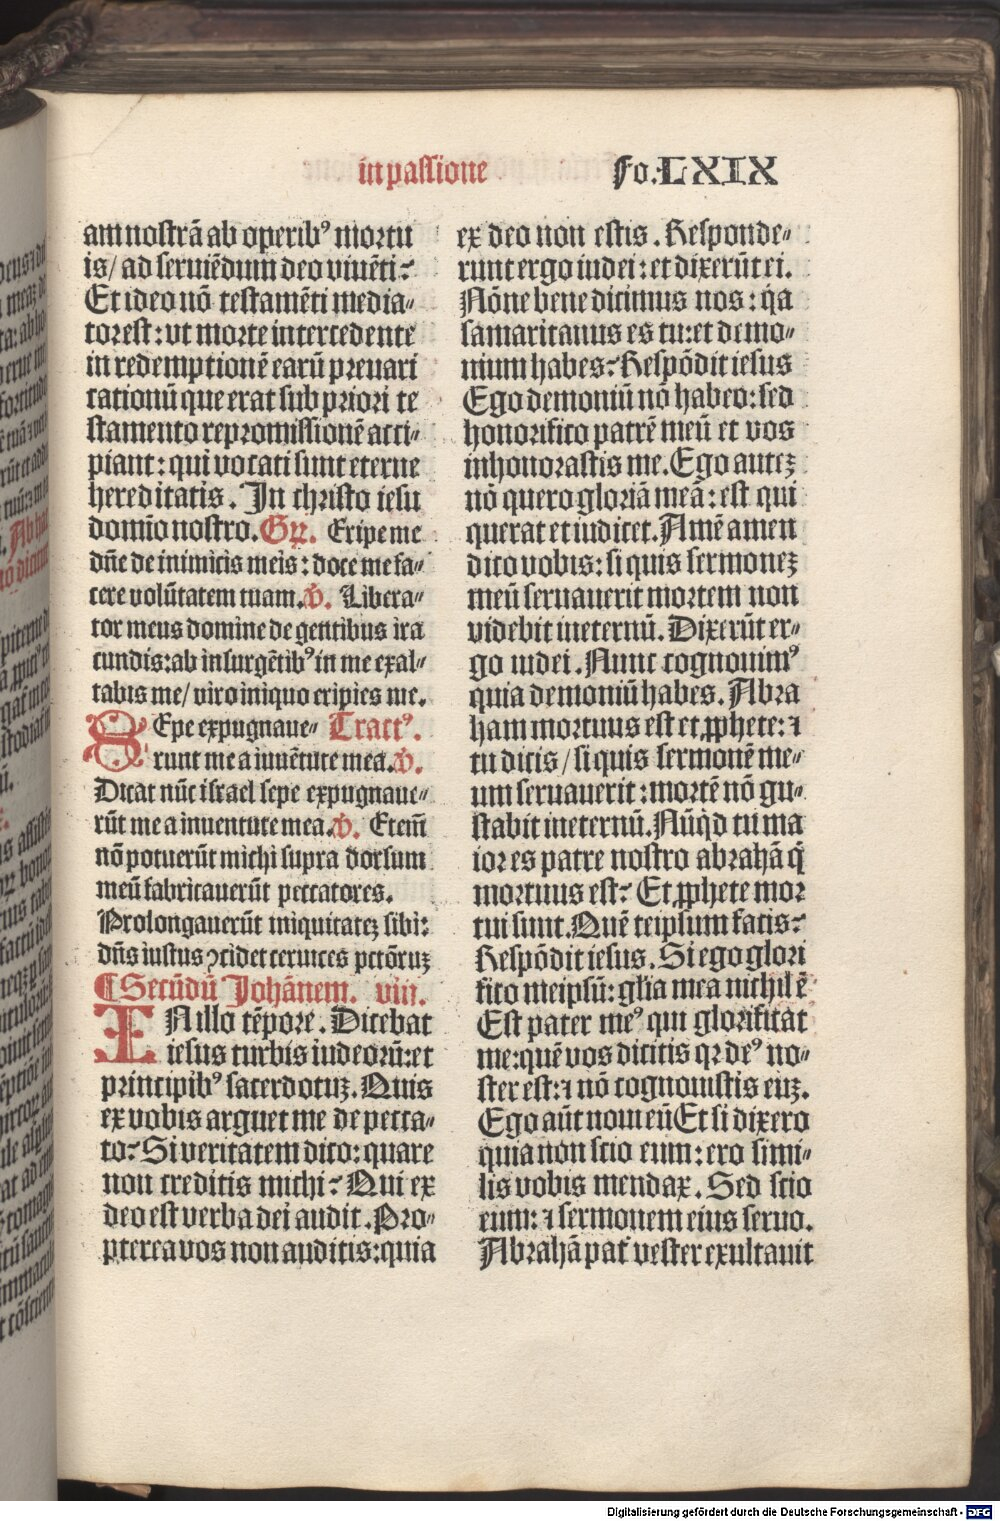 in passione Fo. LXIX
am nostrã ab operibꝰ mortu
is/ ad seruiẽdum deo viuẽti?
Et ideo nõ testamẽti media⸗
tor est: vt morte intercedente
in redemptionẽ earũ preuari
cationũ que erat sub priori te
stamento repromissionẽ acci⸗
piant: qui vocati sunt eterne
hereditatis. In christo iesu
domĩo nostro. Gꝛ. Eripe me
dñe de inimicis meis: doce me fa⸗
cere volũtatem tuam. ℣. Libera⸗
tor meus domine de gentibus ira
cundis: ab insurgẽtibꝰ in me exal⸗
tabis me/ viro iniquo eripies me.
SEpe expugnaue⸗ Tractꝰ.
runt me a iuuẽtute mea. ℣.
Dicat nũc israel sepe expugnaue⸗
rũt me a iuuentute mea. ℣. Etem̃
nõ potuerũt michi supra dorsum
meũ fabricauerũt peccatores.
Prolongauerũt iniquitatez sibi:
dñs iustus ꝯcidet ceruices pctõruz
¶ Secũdũ Johãnem. viii.
IN illo tẽpore. Dicebat
iesus turbis iudeorũ: et
principibꝰ sacerdotuz. Quis
ex vobis arguet me de pecca⸗
to? Si veritatem dico: quare
non creditis michi? Qui ex
deo est verba dei audit. Pro⸗
pterea vos non auditis: quia
ex deo non estis. Responde⸗
runt ergo iudei: et dixerũt ei.
Nõne bene dicimus nos: q̇a
samaritanus es tu: et demo⸗
nium habes? Respõdit iesus
Ego demoniũ nõ habeo: sed
honorifico patrẽ meũ et vos
inhonorastis me. Ego autez
nõ quero gloriã meã: est qui
querat et iudicet. Amẽ amen
dico vobis: si quis sermonez
meũ seruauerit mortem non
videbit ineternũ. Dixerũt er⸗
go iudei. Nunc cognouimꝰ
quia demoniũ habes. Abra
ham mortuus est et ꝓphete: ⁊
tu dicis/ si quis sermonẽ me⸗
um seruauerit: mortẽ nõ gu⸗
stabit ineternũ. Nũq̇d tu ma
ior es patre nostro abrahã q̇
mortuus est? Et ꝓphete mor
tui sunt. Quẽ teipsum facis?
Respõdit iesus. Si ego glori
fico meipsũ: gl̃ia mea nichil ẽ
Est pater meꝰ qui glorificat
me: quẽ vos dicitis qꝛ deꝰ no⸗
ster est: ⁊ nõ cognouistis euz.
Ego aũt noui eũ Et si dixero
quia non scio eum: ero simi⸗
lis vobis mendax. Sed scio
eum: ⁊ sermonem eius seruo.
Abrahã pať vester exultauit
Digitalisierung gefördert durch die Deutsche Forschungsgemeinschaft - DFG